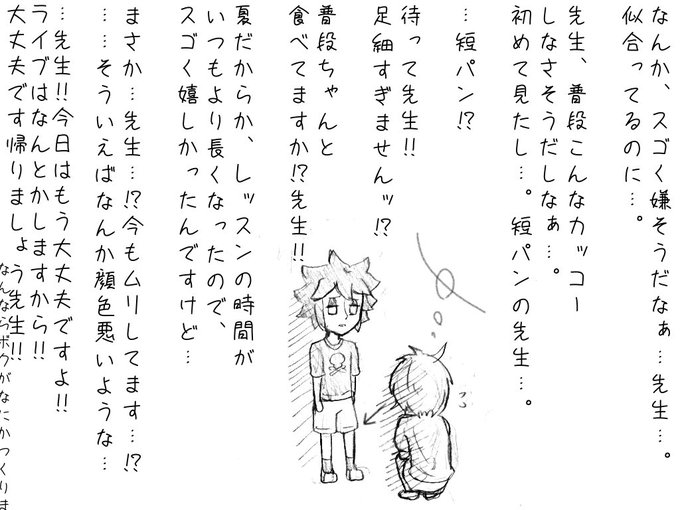 なんか、スゴく嫌そうだなぁ…先生…。
似合ってるのに…。
先生、普段こんなカッコー
しなさそうだしなぁ…。
初めて見たし…。短パンの先生…。
…短パン!?
待って先生!!
足細すぎませんッ!?
普段ちゃんと
食べてますか!?先生!!
夏だからか、レッスンの時間が
いつもより長くなったので、
スゴく嬉しかったんですけど…
まさか…先生…!?今もムリしてます…!?
……そういえばなんか顔色悪いような…
…先生!!今日はもう大丈夫ですよ!!
ライブはなんとかしますから!!
大丈夫です帰りましょう先生!!
なんならボクがなにかつくりま